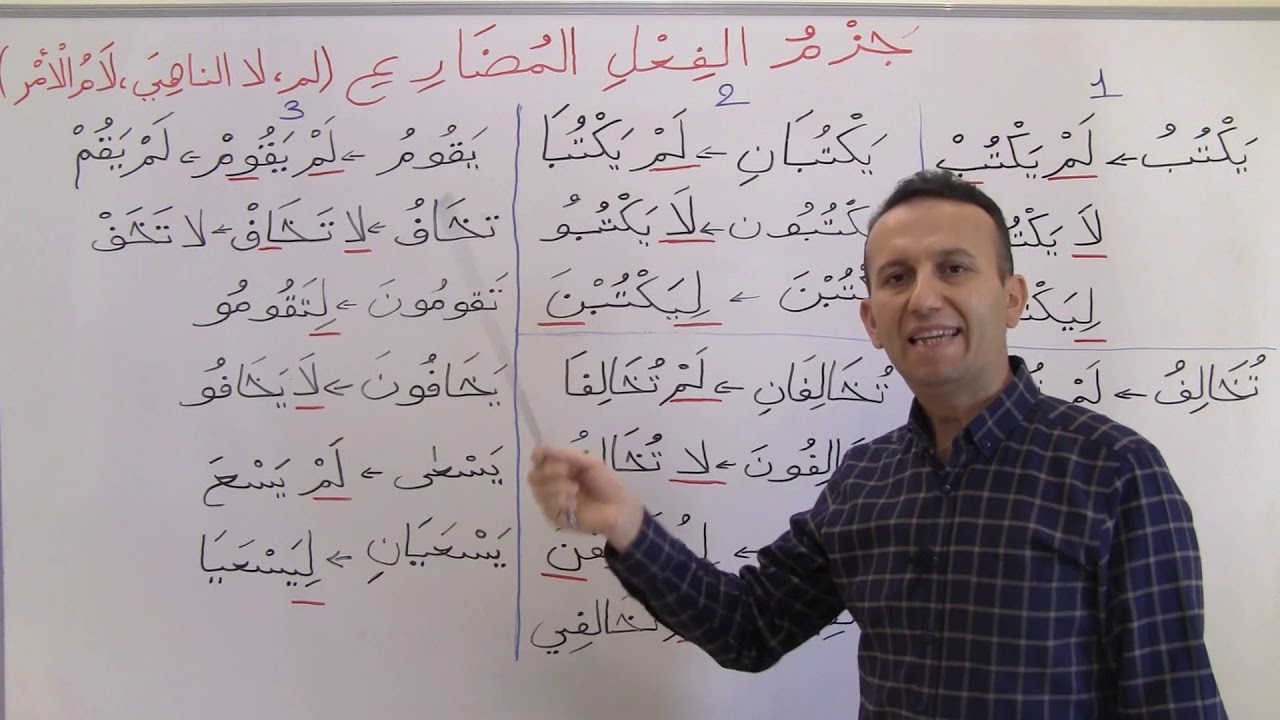 جَزْمُ الفِعْلِ المُضَارِعِ (لم، لا الناهِيَ، لَامُ الْأَمْر)
1
يَكْتُبُ ← لَمْ يَكْتُبْ
لَا
لِيَكْ
تُخَالِفُ ← لَمْ
2
يَكْتُبَانِ ← لَمْ يَكْتُبَا
كْتُبُون ← لَا يَكْتُبُو
تُبْنَ ← لِيَكْتُبْنَ
تُخَالِفَانِ ← لَمْ تُخَالِفَا
الِفُونَ ← لا تُخَالِفُ
تُخَالِفِي
3
يَقُومُ ← لَمْ يَقُومْ ← لَمْ يَقُمْ
تخَافُ ← لا تَخَافْ ← لا تَخَفْ
تَقومُونَ ← لِتَقُومُو
يَخَافُونَ ← لَا يَخَافُو
يَسْعٰى ← لَمْ يَسْعَ
يَسْعَيَانِ ← لِيَسْعَيَا